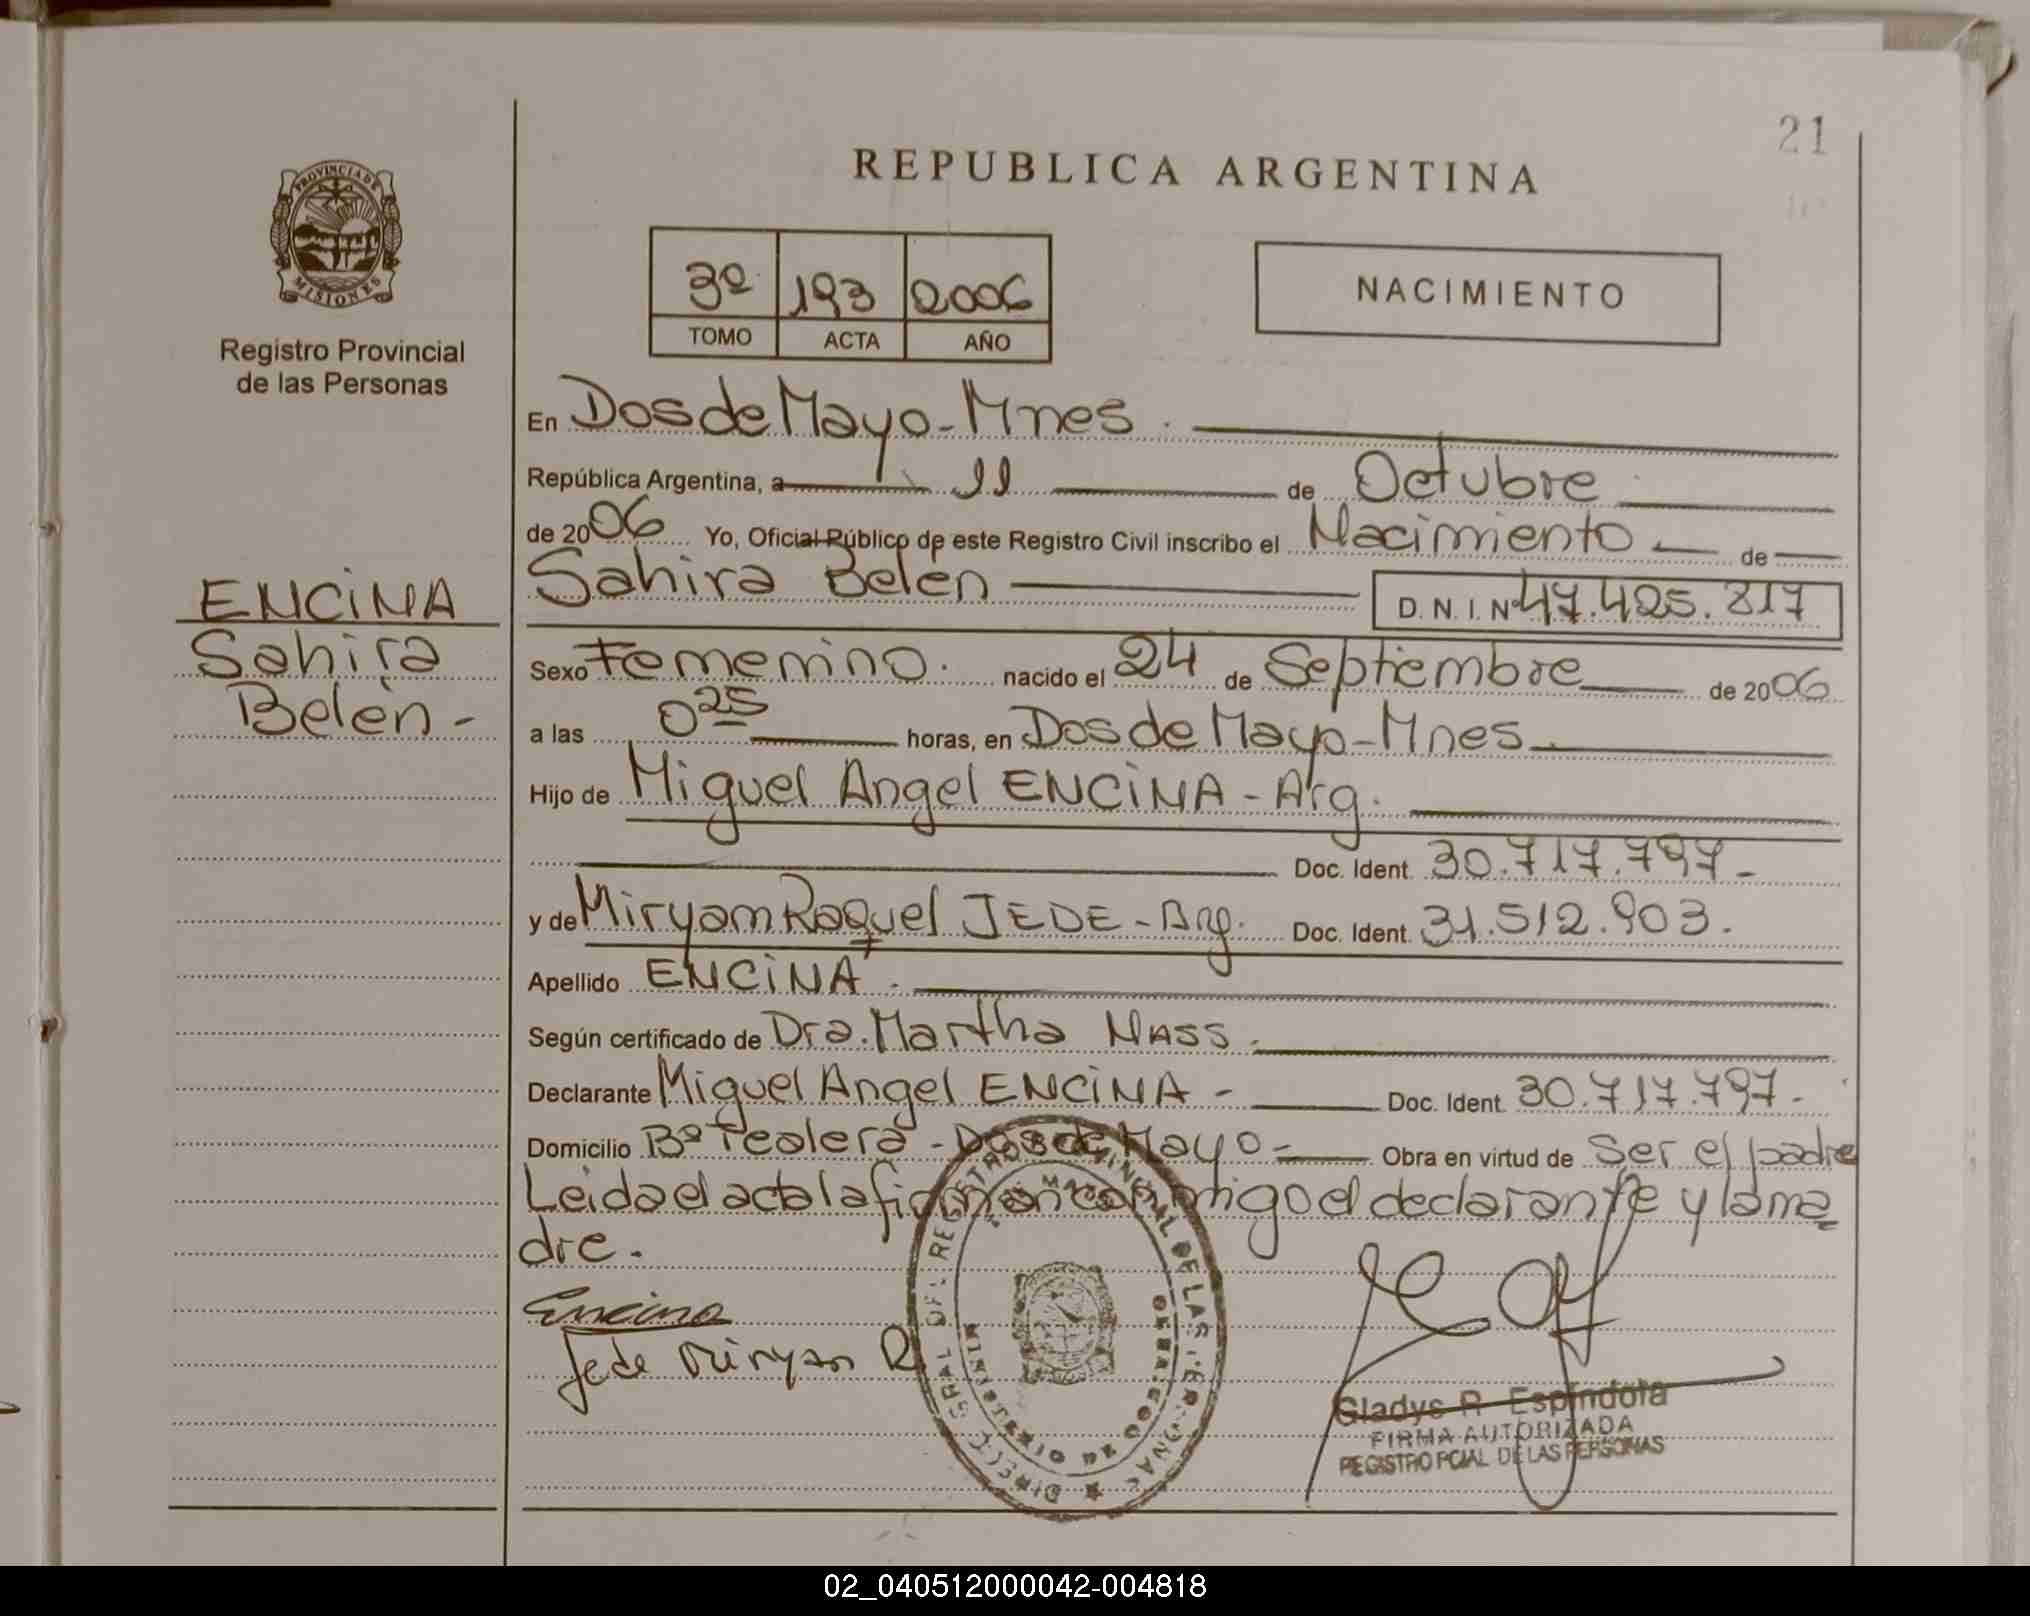 21
REPUBLICA ARGENTINA
PROVINCIA DE
MISIONES
Registro Provincial
de las Personas
3º 193 2006
TOMO ACTA AÑO
NACIMIENTO
En Dos de Mayo - Mnes.
República Argentina, a 11 de Octubre
de 2006 Yo, Oficial Público de este Registro Civil inscribo el Nacimiento de
Sahira Belén D. N. I. Nº 47.425.817
ENCINA
Sahira
Belén -
Sexo Femenino. nacido el 24 de Septiembre de 2006
a las 0 25 horas, en Dos de Mayo - Mnes.
Hijo de Miguel Angel ENCINA - Arg.
Doc. Ident. 30.717.797 -
y de Miryam Raquel JEDE - Arg. Doc. Ident. 31.512.903.
Apellido ENCINA.
Según certificado de Dra. Martha NASS.
Declarante Miguel Angel ENCINA - Doc. Ident. 30.717.797.
Domicilio Bº Tealera - Dos de Mayo - Obra en virtud de Ser el padre
Leida el acta la firman conmigo el declarante y la ma
dre.
Encina
Jede Miryan R
Gladys R. Espindola
FIRMA AUTORIZADA
REGISTRO PCIAL DE LAS PERSONAS
02_040512000042-004818